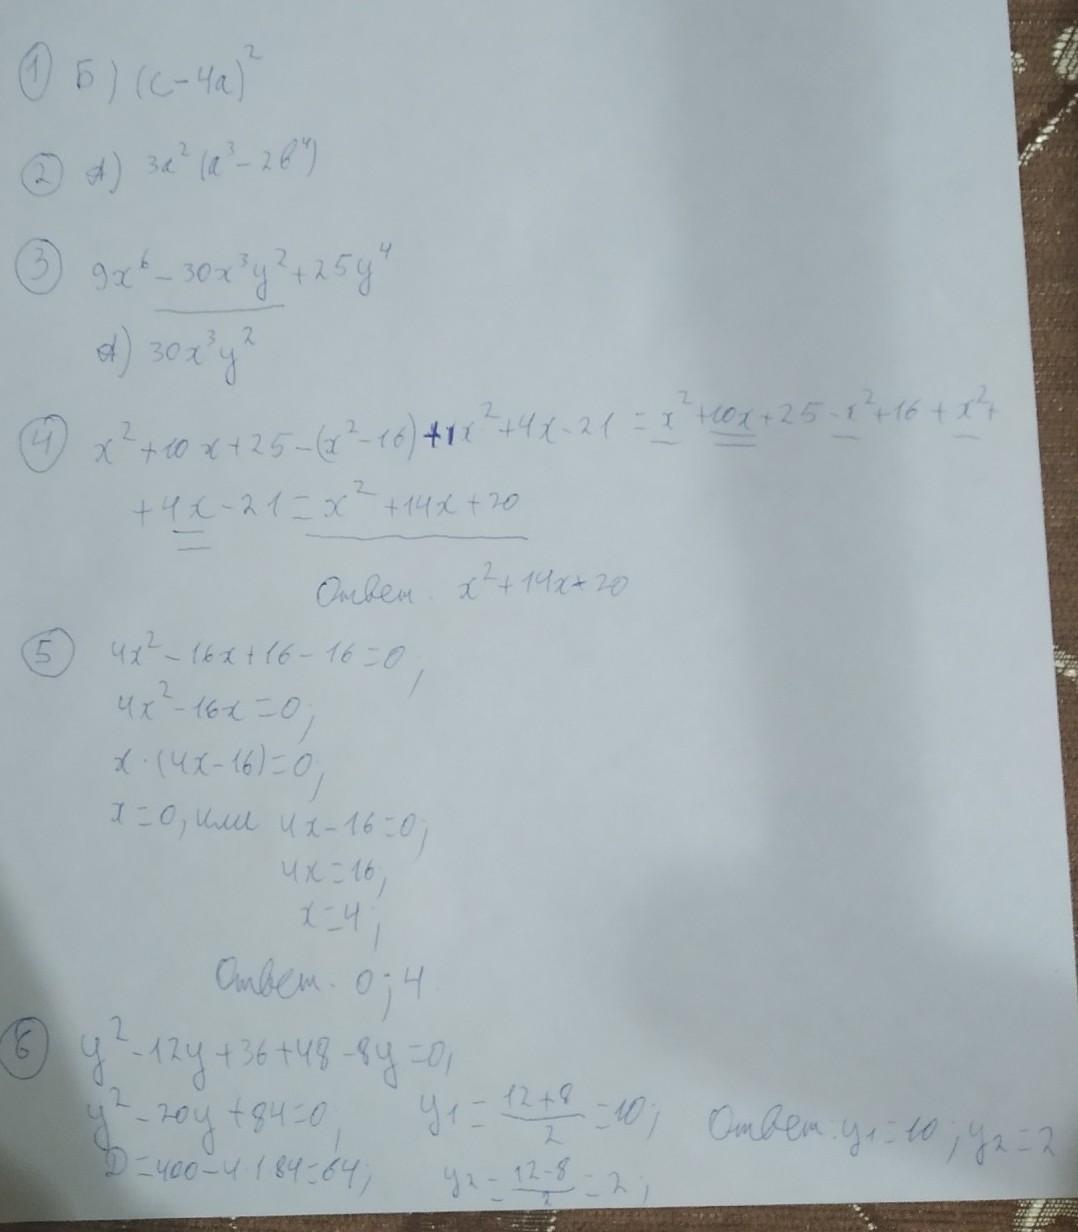 ① Б) (c-4a)²
② А) 3a²(a³-2b⁴)
③ 9x⁶-30x³y²+25y⁴
А) 30x³y²
④ x²+10x+25-(x²-16)+x²+4x-21=x²+10x+25-x²+16+x²+
+4x-21=x²+14x+20
Ответ. x²+14x+20
⑤ 4x²-16x+16-16=0;
4x²-16x=0;
x·(4x-16)=0;
x=0, или 4x-16=0;
4x=16;
x=4;
Ответ. 0; 4.
⑥ y²-12y+36+48-8y=0;
y²-20y+84=0; y₁=(12+8)/2=10; Ответ: y₁=10; y₂=2
D=400-4·1·84=64; y₂=(12-8)/2=2;